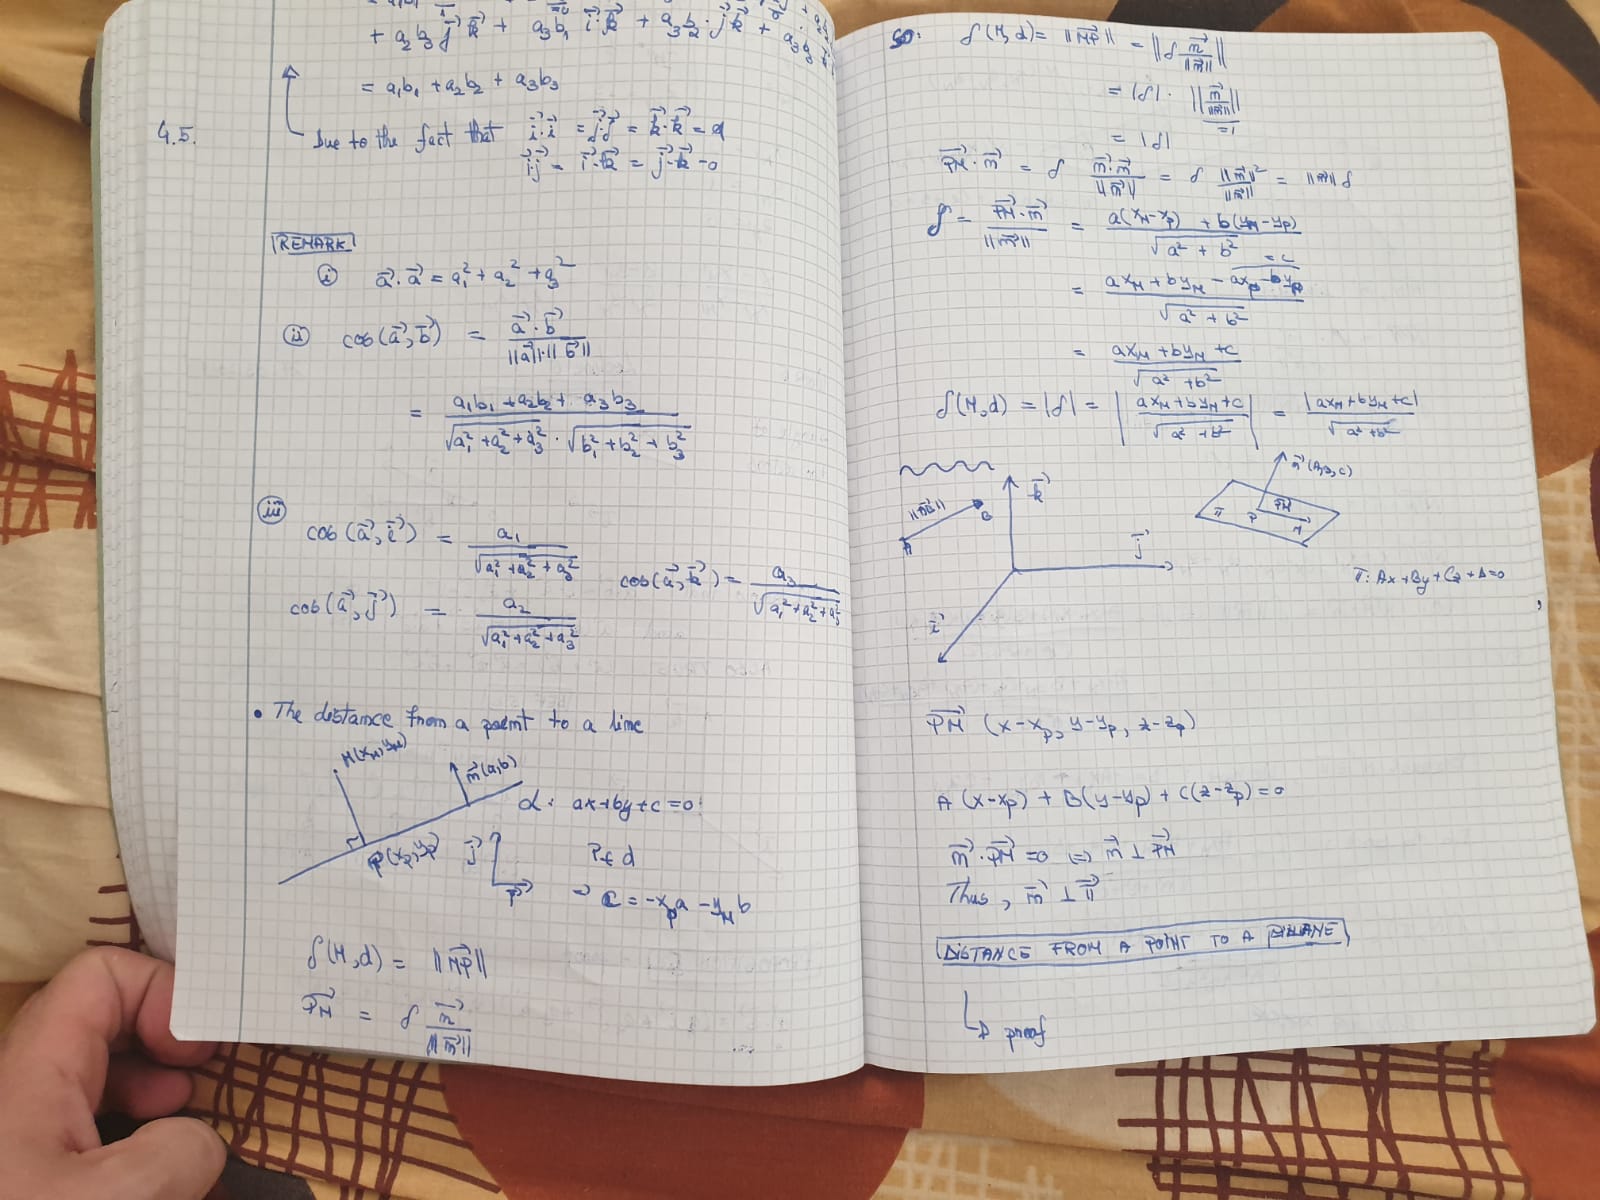 + a₂b₃ j⃗·k⃗ + a₃b₁ i⃗·k⃗ + a₃b₂·j⃗·k⃗ + a₃b₃
= a₁b₁ + a₂b₂ + a₃b₃
4.5.
Due to the fact that i⃗·i⃗ = j⃗·j⃗ = k⃗·k⃗ = 1
i⃗·j⃗ = i⃗·k⃗ = j⃗·k⃗ = 0
REMARK
(i) a⃗·a⃗ = a₁² + a₂² + a₃²
(ii) cos(a⃗,b⃗) = (a⃗·b⃗)/(||a⃗||·||b⃗||)
= (a₁b₁ + a₂b₂ + a₃b₃)/(√(a₁² + a₂² + a₃²) · √(b₁² + b₂² + b₃²))
(iii) cos(a⃗,i⃗) = a₁/√(a₁² + a₂² + a₃²)
cos(a⃗,k⃗) = a₃/√(a₁² + a₂² + a₃²)
cos(a⃗,j⃗) = a₂/√(a₁² + a₂² + a₃²)
• The distance from a point to a line
M(x_M, y_M)
n⃗(a,b)
d: ax+by+c=0
P(x_P, y_P)
j⃗
P ∈ d
i⃗
⇒ c = -x_P a - y_M b
δ(M,d) = ||M⃗P||
P⃗M = δ n⃗/||n⃗||
so: δ(M,d) = ||M⃗P|| = ||δ n⃗/||n⃗|| ||
= |δ| · || n⃗/||n⃗|| ||
=1
= |δ|
P⃗M·n⃗ = δ (n⃗·n⃗)/||n⃗|| = δ ||n⃗||²/||n⃗|| = ||n⃗|| δ
δ = (P⃗M·n⃗)/||n⃗|| = (a(x_M-x_P) + b(y_M-y_P))/√(a² + b²)
= c
= (ax_M + by_M - ax_P - by_P)/√(a² + b²)
= (ax_M + by_M + c)/√(a² + b²)
δ(M,d) = |δ| = |(ax_M + by_M + c)/√(a² + b²)| = |ax_M + by_M + c|/√(a² + b²)
n⃗(A,B,C)
k⃗
||A⃗B||
B
A
π
P
P⃗M
M
j⃗
π: Ax+By+Cz+D=0
i⃗
P⃗M (x-x_P, y-y_P, z-z_P)
A(x-x_P) + B(y-y_P) + C(z-z_P)=0
n⃗·P⃗M = 0 ⇔ n⃗ ⊥ P⃗M
Thus, n⃗ ⊥ π⃗
DISTANCE FROM A POINT TO A PLANE
↳ proof